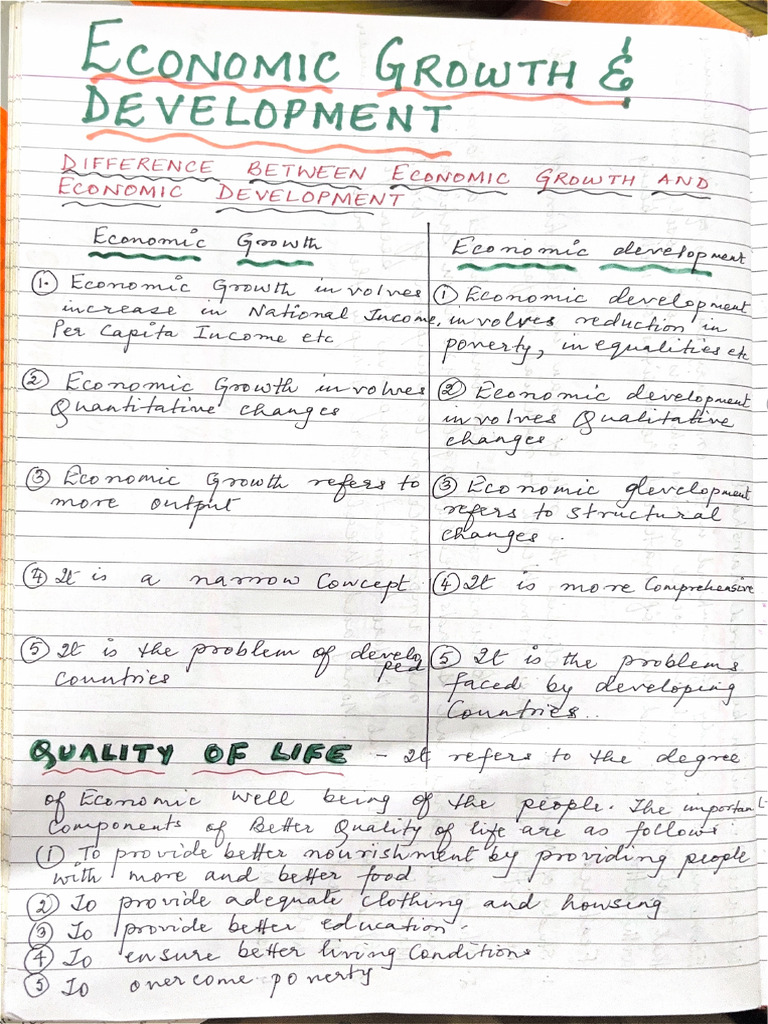 ECONOMIC GROWTH &
DEVELOPMENT
DIFFERENCE BETWEEN ECONOMIC GROWTH AND
ECONOMIC DEVELOPMENT
Economic Growth
1. Economic Growth involves
increase in National Income,
Per Capita Income etc
2 Economic Growth involves
Quantitative changes
3 Economic Growth refers to
more output
4 It is a narrow Concept
5 It is the problem of developed
Countries
Economic development
1 Economic development
involves reduction in
poverty, inequalities etc
2 Economic development
involves Qualitative
changes.
3 Economic development
refers to structural
changes.
4 It is more Comprehensive
5 It is the problems
faced by developing
Countries..
QUALITY OF LIFE - It refers to the degree
of Economic well being of the people. The important
Components of Better Quality of life are as follows
1 To provide better nourishment by providing people
with more and better food
2 To provide adequate clothing and housing
3 To provide better education.
4 To ensure better living Conditions
5 To overcome poverty